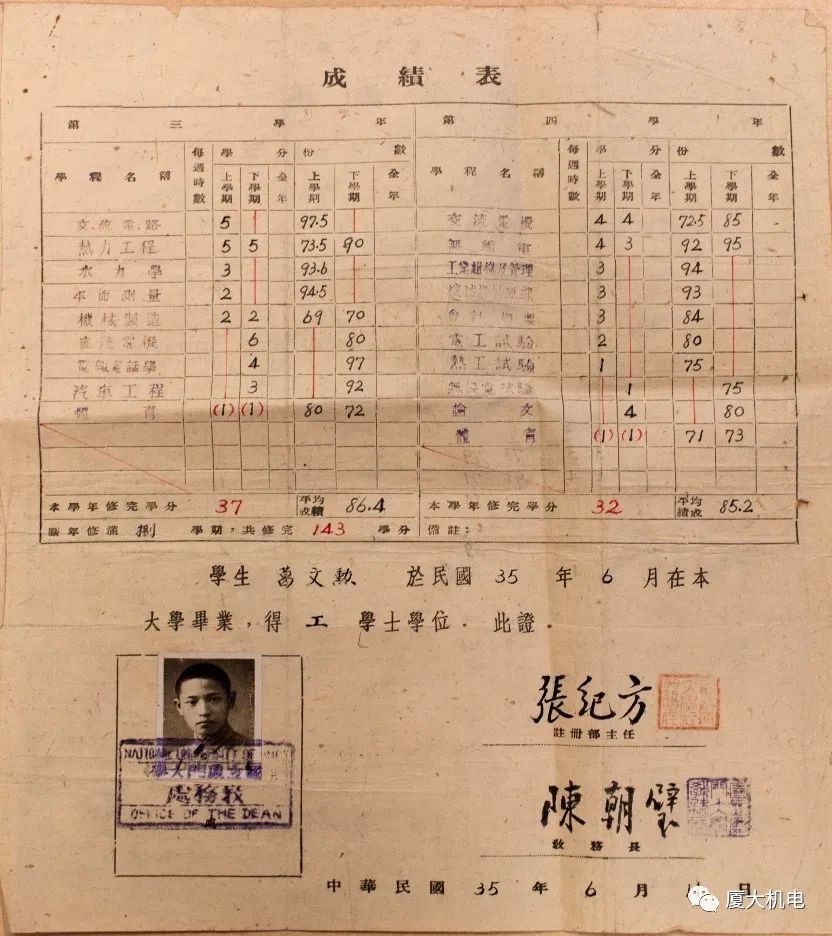 成績表
第三學年 第四學年
學程名稱 每週時數 學分 份數 學程名稱 每週時數 學分 份數
上學期 下學期 全年 上學期 下學期 全年 上學期 下學期 全年 上學期 下學期 全年
交流電路 5 97.5 交流電機 4 4 72.5 85
熱力工程 5 5 73.5 90 無線電 4 3 92 95
水力學 3 93.6 工業組織及管理 3 94
平面測量 2 94.5 3 93
機械製造 2 2 69 70 3 84
直流電機 6 80 電工試驗 2 80
電報電話學 4 97 熱工試驗 1 75
汽車工程 3 92 無線電試驗 1 75
體育 (1) (1) 80 72 論文 4 80
體育 (1) (1) 71 73
本學年修完學分 37 平均成績 86.4 本學年修完學分 32 平均成績 85.2
歷年修滿 捌 學期,共修完 143 學分 備註:
學生 葛文勲 於民國 35 年 6 月在本
大學畢業,得 工 學士學位.此證.
張紀方
註冊部主任
NATIONAL UNIVERSITY OF AMOY
國立廈門大學
教務處
OFFICE OF THE DEAN
陳朝璧
教務長
中華民國 35 年 6 月 日
厦大机电